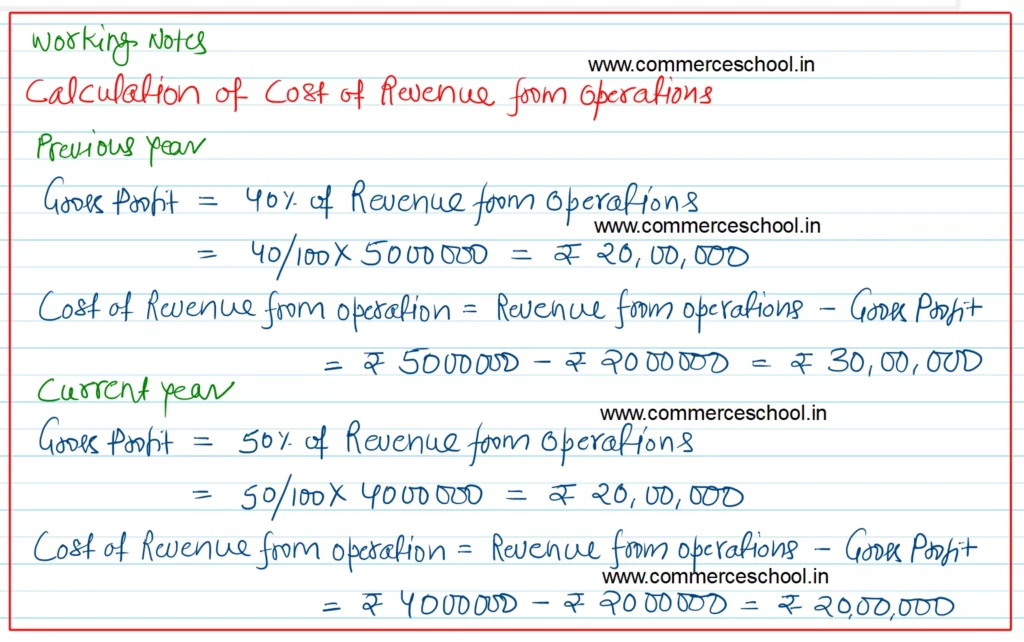 Working Notes
www.commerceschool.in
Calculation of Cost of Revenue from operations
Previous year
Gross Profit = 40% of Revenue from operations
www.commerceschool.in
= 40/100 X 5000000 = ₹ 20,00,000
Cost of Revenue from operation = Revenue from operations - Gross Profit
= ₹ 5000000 - ₹ 2000000 = ₹ 30,00,000
Current year
www.commerceschool.in
Gross Profit = 50% of Revenue from operations
= 50/100 X 4000000 = ₹ 20,00,000
Cost of Revenue from operation = Revenue from operations - Gross Profit
www.commerceschool.in
= ₹ 4000000 - ₹ 2000000 = ₹ 20,00,000